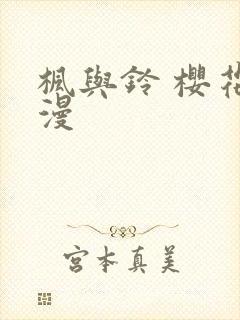 楓與鈴 櫻花
漫
宮本真美